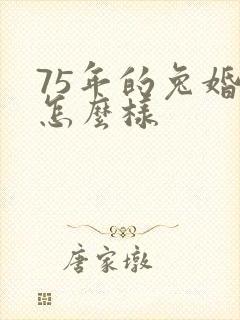 75年的兔婚
怎麼樣
唐家墩